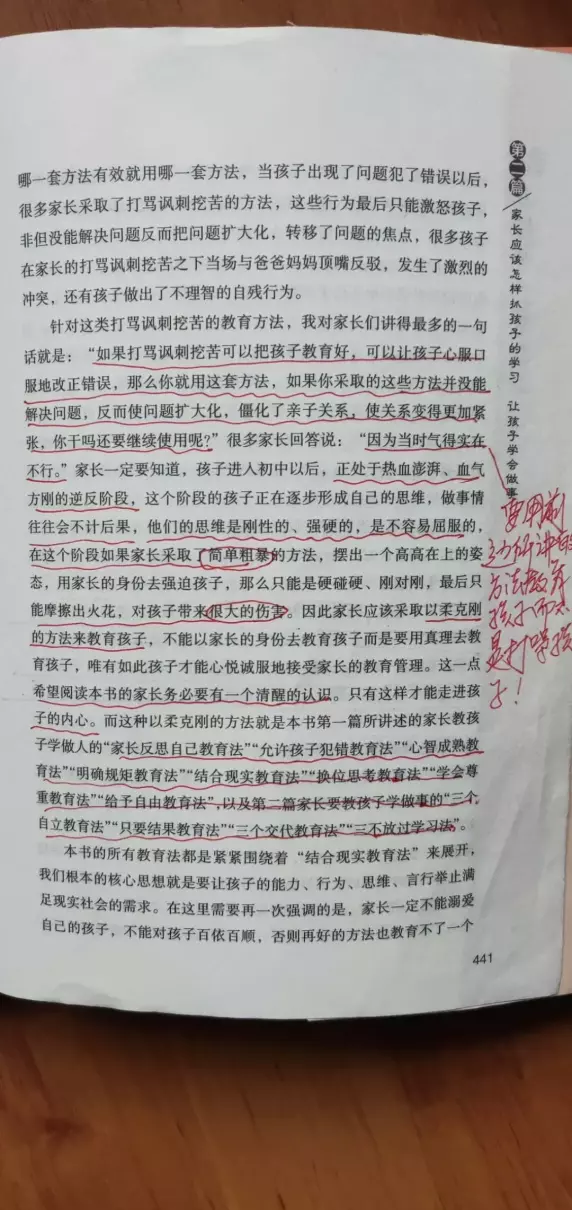 哪一套方法有效就用哪一套方法，当孩子出现了问题犯了错误以后，
很多家长采取了打骂讽刺挖苦的方法，这些行为最后只能激怒孩子，
非但没能解决问题反而把问题扩大化，转移了问题的焦点，很多孩子
在家长的打骂讽刺挖苦之下当场与爸爸妈妈顶嘴反驳，发生了激烈的
冲突，还有孩子做出了不理智的自残行为。
针对这类打骂讽刺挖苦的教育方法，我对家长们讲得最多的一句
话就是：“如果打骂讽刺挖苦可以把孩子教育好，可以让孩子心服口
服地改正错误，那么你就用这套方法，如果你采取的这些方法并没能
解决问题，反而使问题扩大化，僵化了亲子关系，使关系变得更加紧
张，你干吗还要继续使用呢?”很多家长回答说：“因为当时气得实在
不行。”家长一定要知道，孩子进入初中以后，正处于热血澎湃、血气
方刚的逆反阶段，这个阶段的孩子正在逐步形成自己的思维，做事情
往往会不计后果，他们的思维是刚性的、强硬的，是不容易屈服的，
在这个阶段如果家长采取了简单粗暴的方法，摆出一个高高在上的姿
态，用家长的身份去强迫孩子，那么只能是硬碰硬、刚对刚，最后只
能摩擦出火花，对孩子带来很大的伤害。因此家长应该采取以柔克刚
的方法来教育孩子，不能以家长的身份去教育孩子而是要用真理去教
育孩子，唯有如此孩子才能心悦诚服地接受家长的教育管理。这一点
希望阅读本书的家长务必要有一个清醒的认识。只有这样才能走进孩
子的内心。而这种以柔克刚的方法就是本书第一篇所讲述的家长教孩
子学做人的“家长反思自己教育法”“允许孩子犯错教育法”“心智成熟教
育法”“明确规矩教育法”“结合现实教育法”“换位思考教育法”“学会尊
重教育法”“给予自由教育法”，以及第二篇家长要教孩子学做事的“三个
自立教育法”“只要结果教育法”“三个交代教育法”“三不放过学习法”。
本书的所有教育法都是紧紧围绕着“结合现实教育法”来展开，
我们根本的核心思想就是要让孩子的能力、行为、思维、言行举止满
足现实社会的需求。在这里需要再一次强调的是，家长一定不能溺爱
自己的孩子，不能对孩子百依百顺，否则再好的方法也教育不了一个
441
第二篇
家长应该怎样抓孩子的学习 让孩子学会做事
要用前
边所讲的
方法教育
孩子而不
是打骂孩
子！